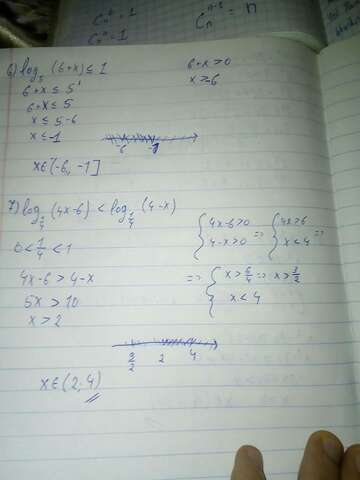 Cₙ⁰ = 1
Cₙⁿ = 1
Cₙⁿ⁻¹ = n
6) log₅ (6+x) ≤ 1
6+x > 0
x > -6
6+x ≤ 5¹
6+x ≤ 5
x ≤ 5-6
x ≤ -1
-6 -1
x∈(-6, -1]
7) log_{1/4} (4x-6) < log_{1/4} (4-x)
{ 4x-6>0 => { 4x>6 =>
4-x>0 x<4
0 < 1/4 < 1
=> { x > 6/4 => x > 3/2
x < 4
4x-6 > 4-x
5x > 10
x > 2
3/2 2 4
x∈(2, 4)